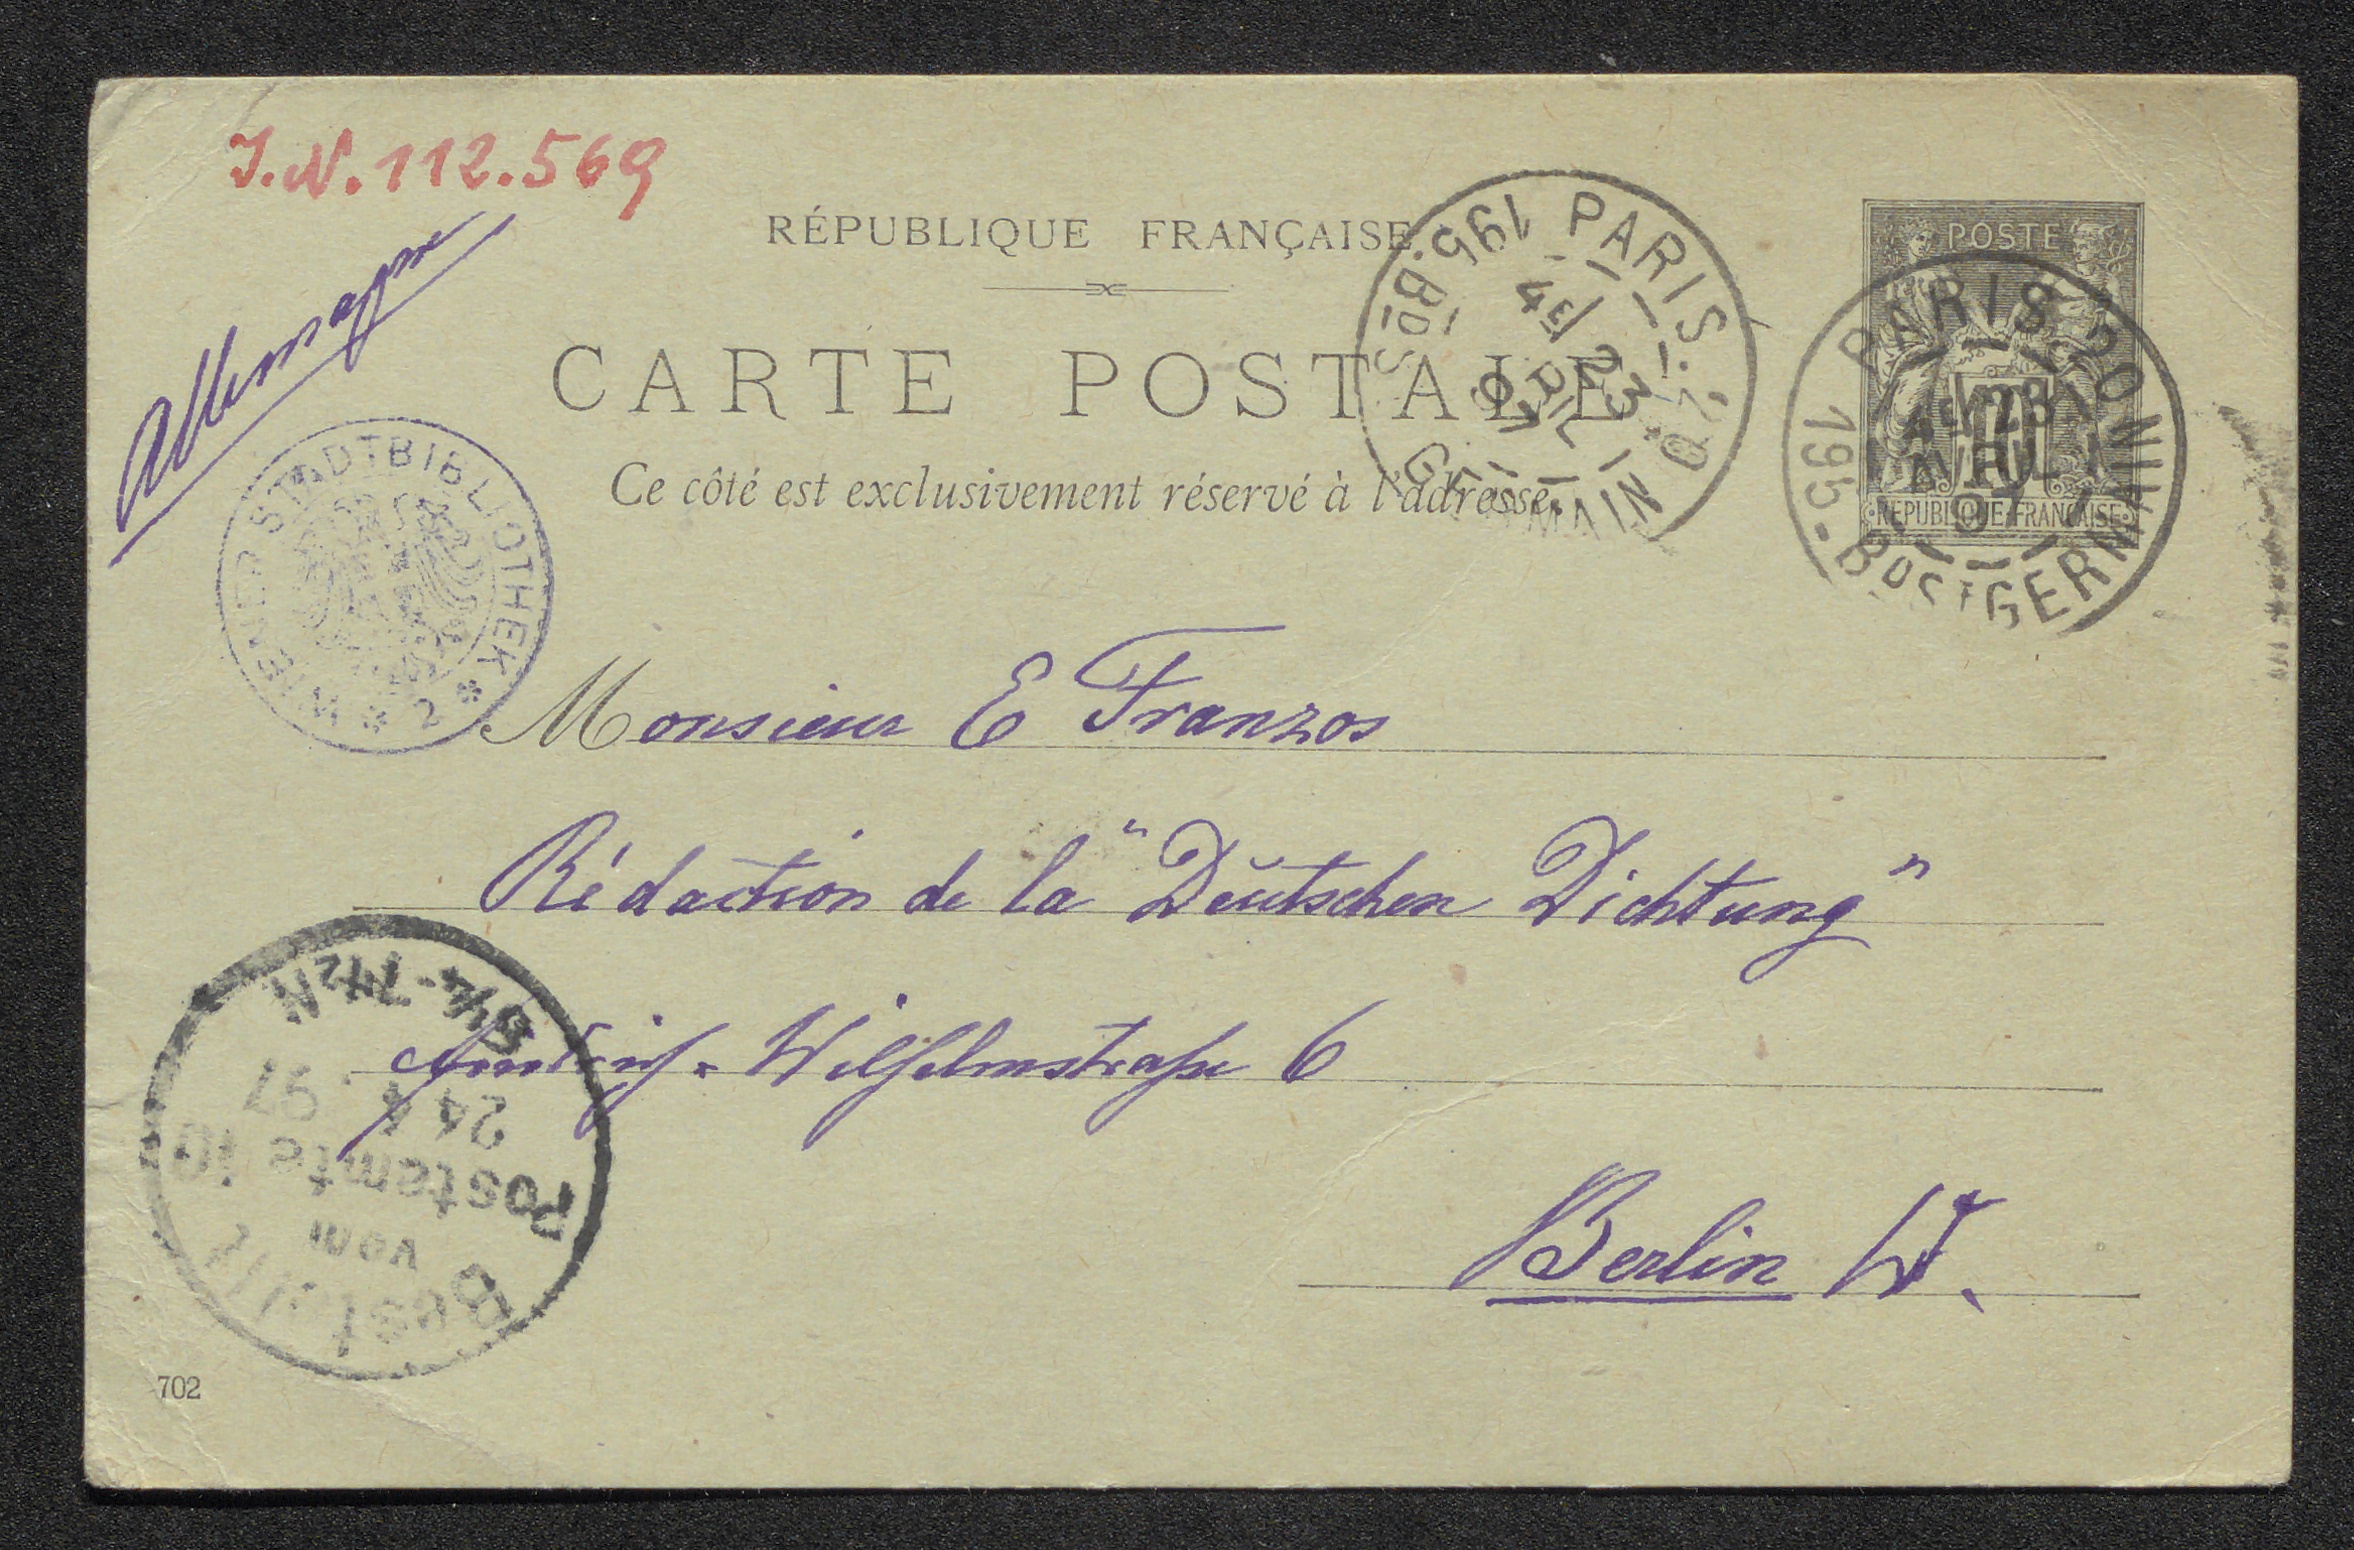 J.N. 112.569
Allemagne
RÉPUBLIQUE FRANÇAISE
CARTE POSTALE
Ce côté est exclusivement réservé à l'adresse.
PARIS. 20
4E 23
AVRIL
97
195. Bd St GERMAIN
POSTE
10
RÉPUBLIQUE FRANÇAISE
PARIS 20
4E 23
AVRIL
97
195 - Bd St GERMAIN
WIENER STADTBIBLIOTHEK * 2 *
Monsieur E Franzos
Rédaction de la "Deutschen Dichtung"
Wilhelmstraße 6
Berlin W.
Bestellt
vom
Postamte 10
24 4 97
5¼-7½N
702